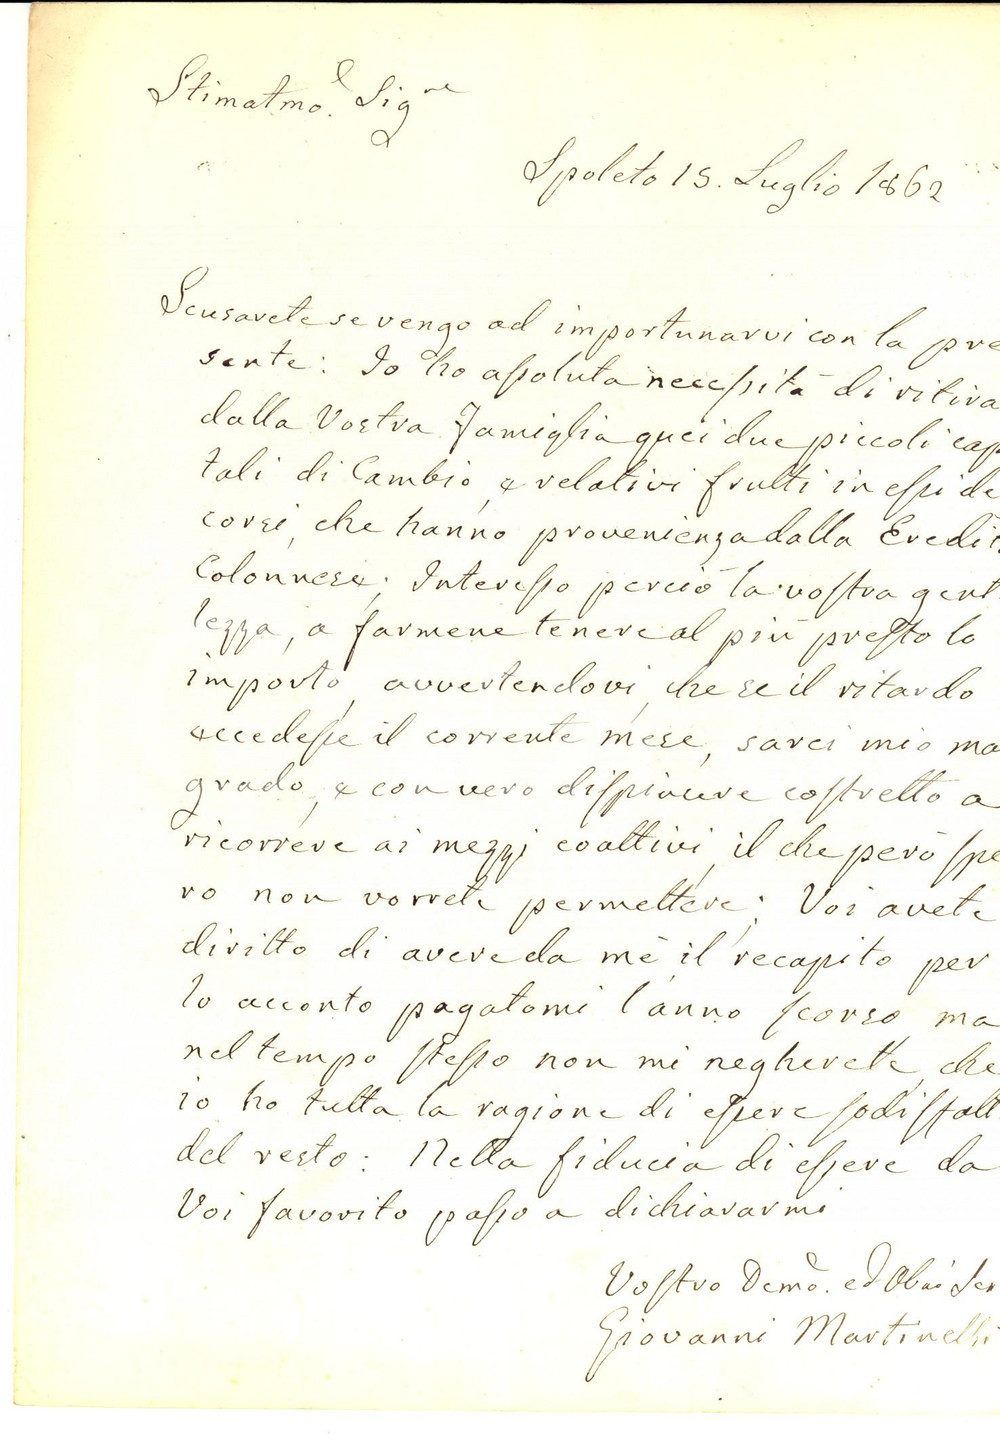 Stimatmo. Sigre
Spoleto 15. Luglio 1862
Scusarete se vengo ad importunarvi con la pre
sente: Io ho assoluta necessità di ritira
dalla Vostra Famiglia quei due piccoli cap
tali di Cambio, e relativi frutti in essi de
corsi, che hanno provenienza dalla Eredit
Colonnese; Interesso perciò la vostra gent
lezza, a farmene tenere al più presto lo
importo, avvertendovi, che se il ritardo
eccedesse il corrente mese, sarei mio ma
grado, e con vero dispiacere costretto a
ricorrere ai mezzi coattivi, il che però spe
ro non vorrete permettere; Voi avete
diritto di avere da mè il recapito per
lo acconto pagatomi l'anno scorso ma
nel tempo stesso non mi negherete, che
io ho tutta la ragione di essere sodisfatt
del resto: Nella fiducia di essere da
Voi favorito passo a dichiararmi
Vostro Demo. ed Obbmo Ser
Giovanni Martinelli